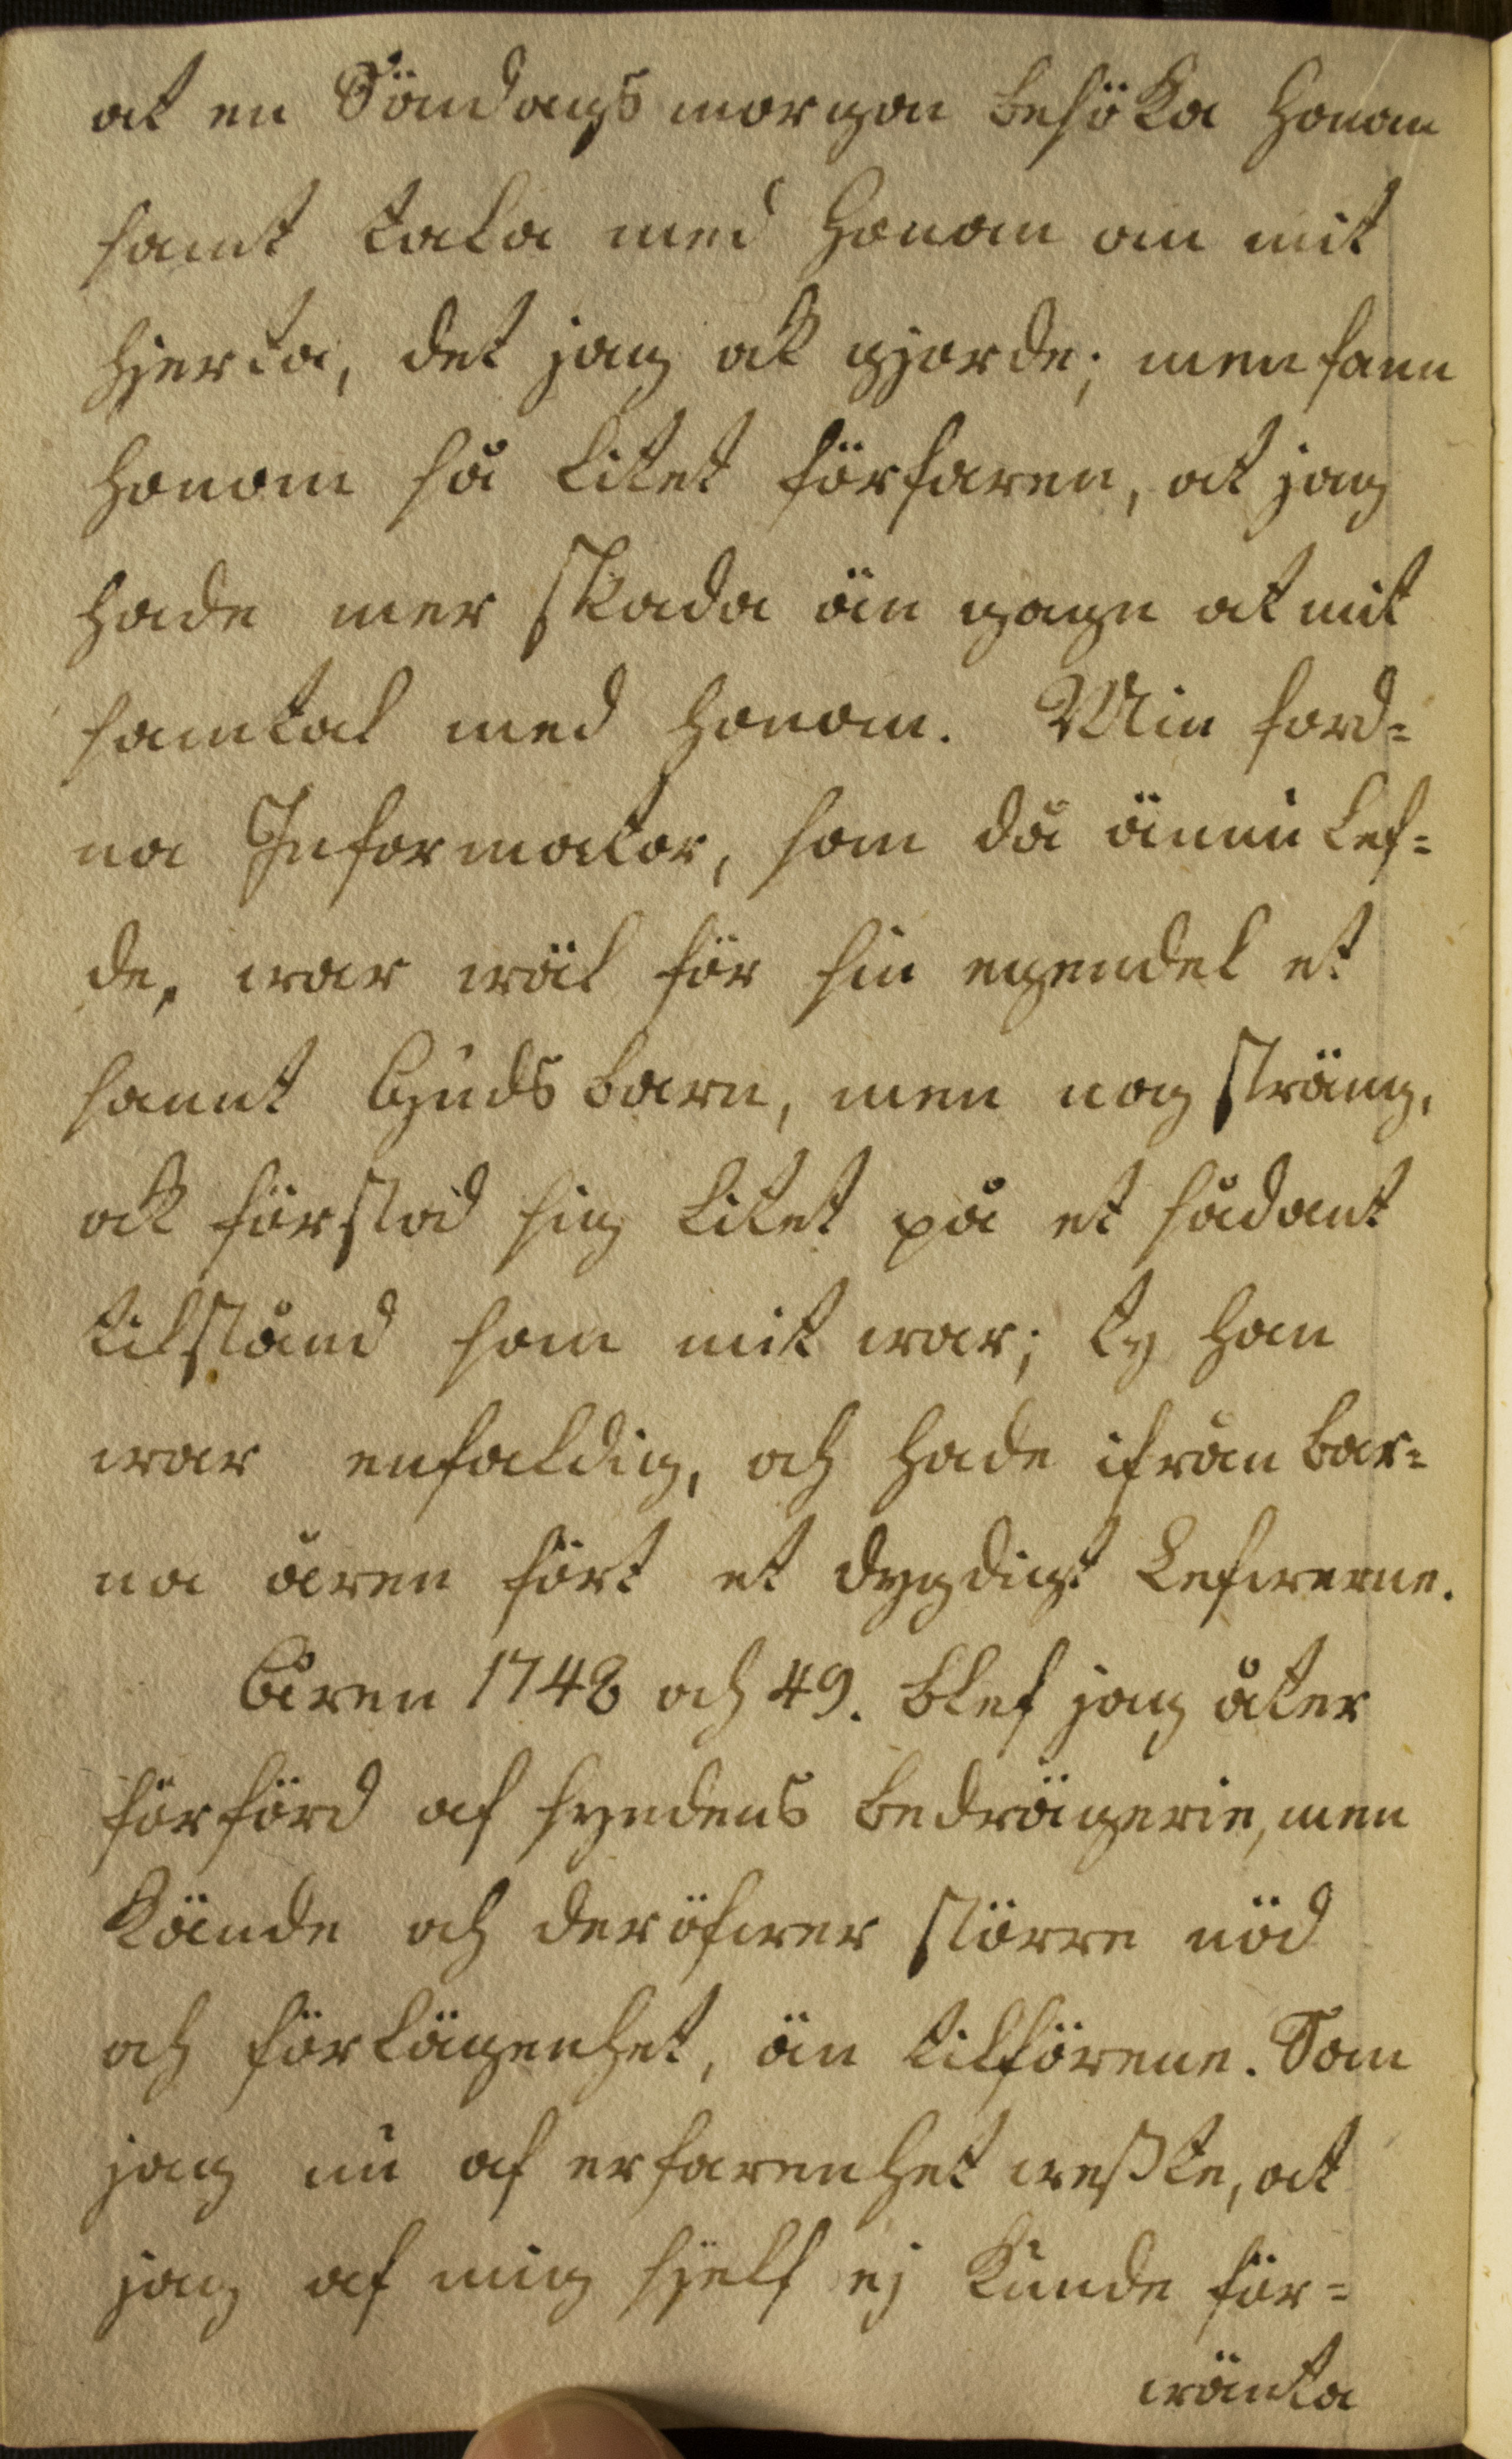 at en Söndags morgon besöka honom
samt tala med honom om mit
hjerta, det jag ok gjorde; men fann
honom så litet förfaren, at jag
hade mer skada än gagn at mit
samtal med honom. Min ford=
na Informator, som då ännu lef=
de, war wäl för sin egendel et
sannt Guds barn, men nog sträng,
ok förstod sig litet på et sådant
tilstånd som mit war; ty han
war enfaldig, och hade ifrån bar=
na åren fört et dygdigt Lefwerne.
Åren 1748 och 49. blef jag åter
förförd af syndens bedrägerie, men
kände och deröfwer större nöd
och förlägenhet, än tilförene. Som
jag nu af erfarenhet wißte, at
jag af mig sjelf ej kunde för=
wänta